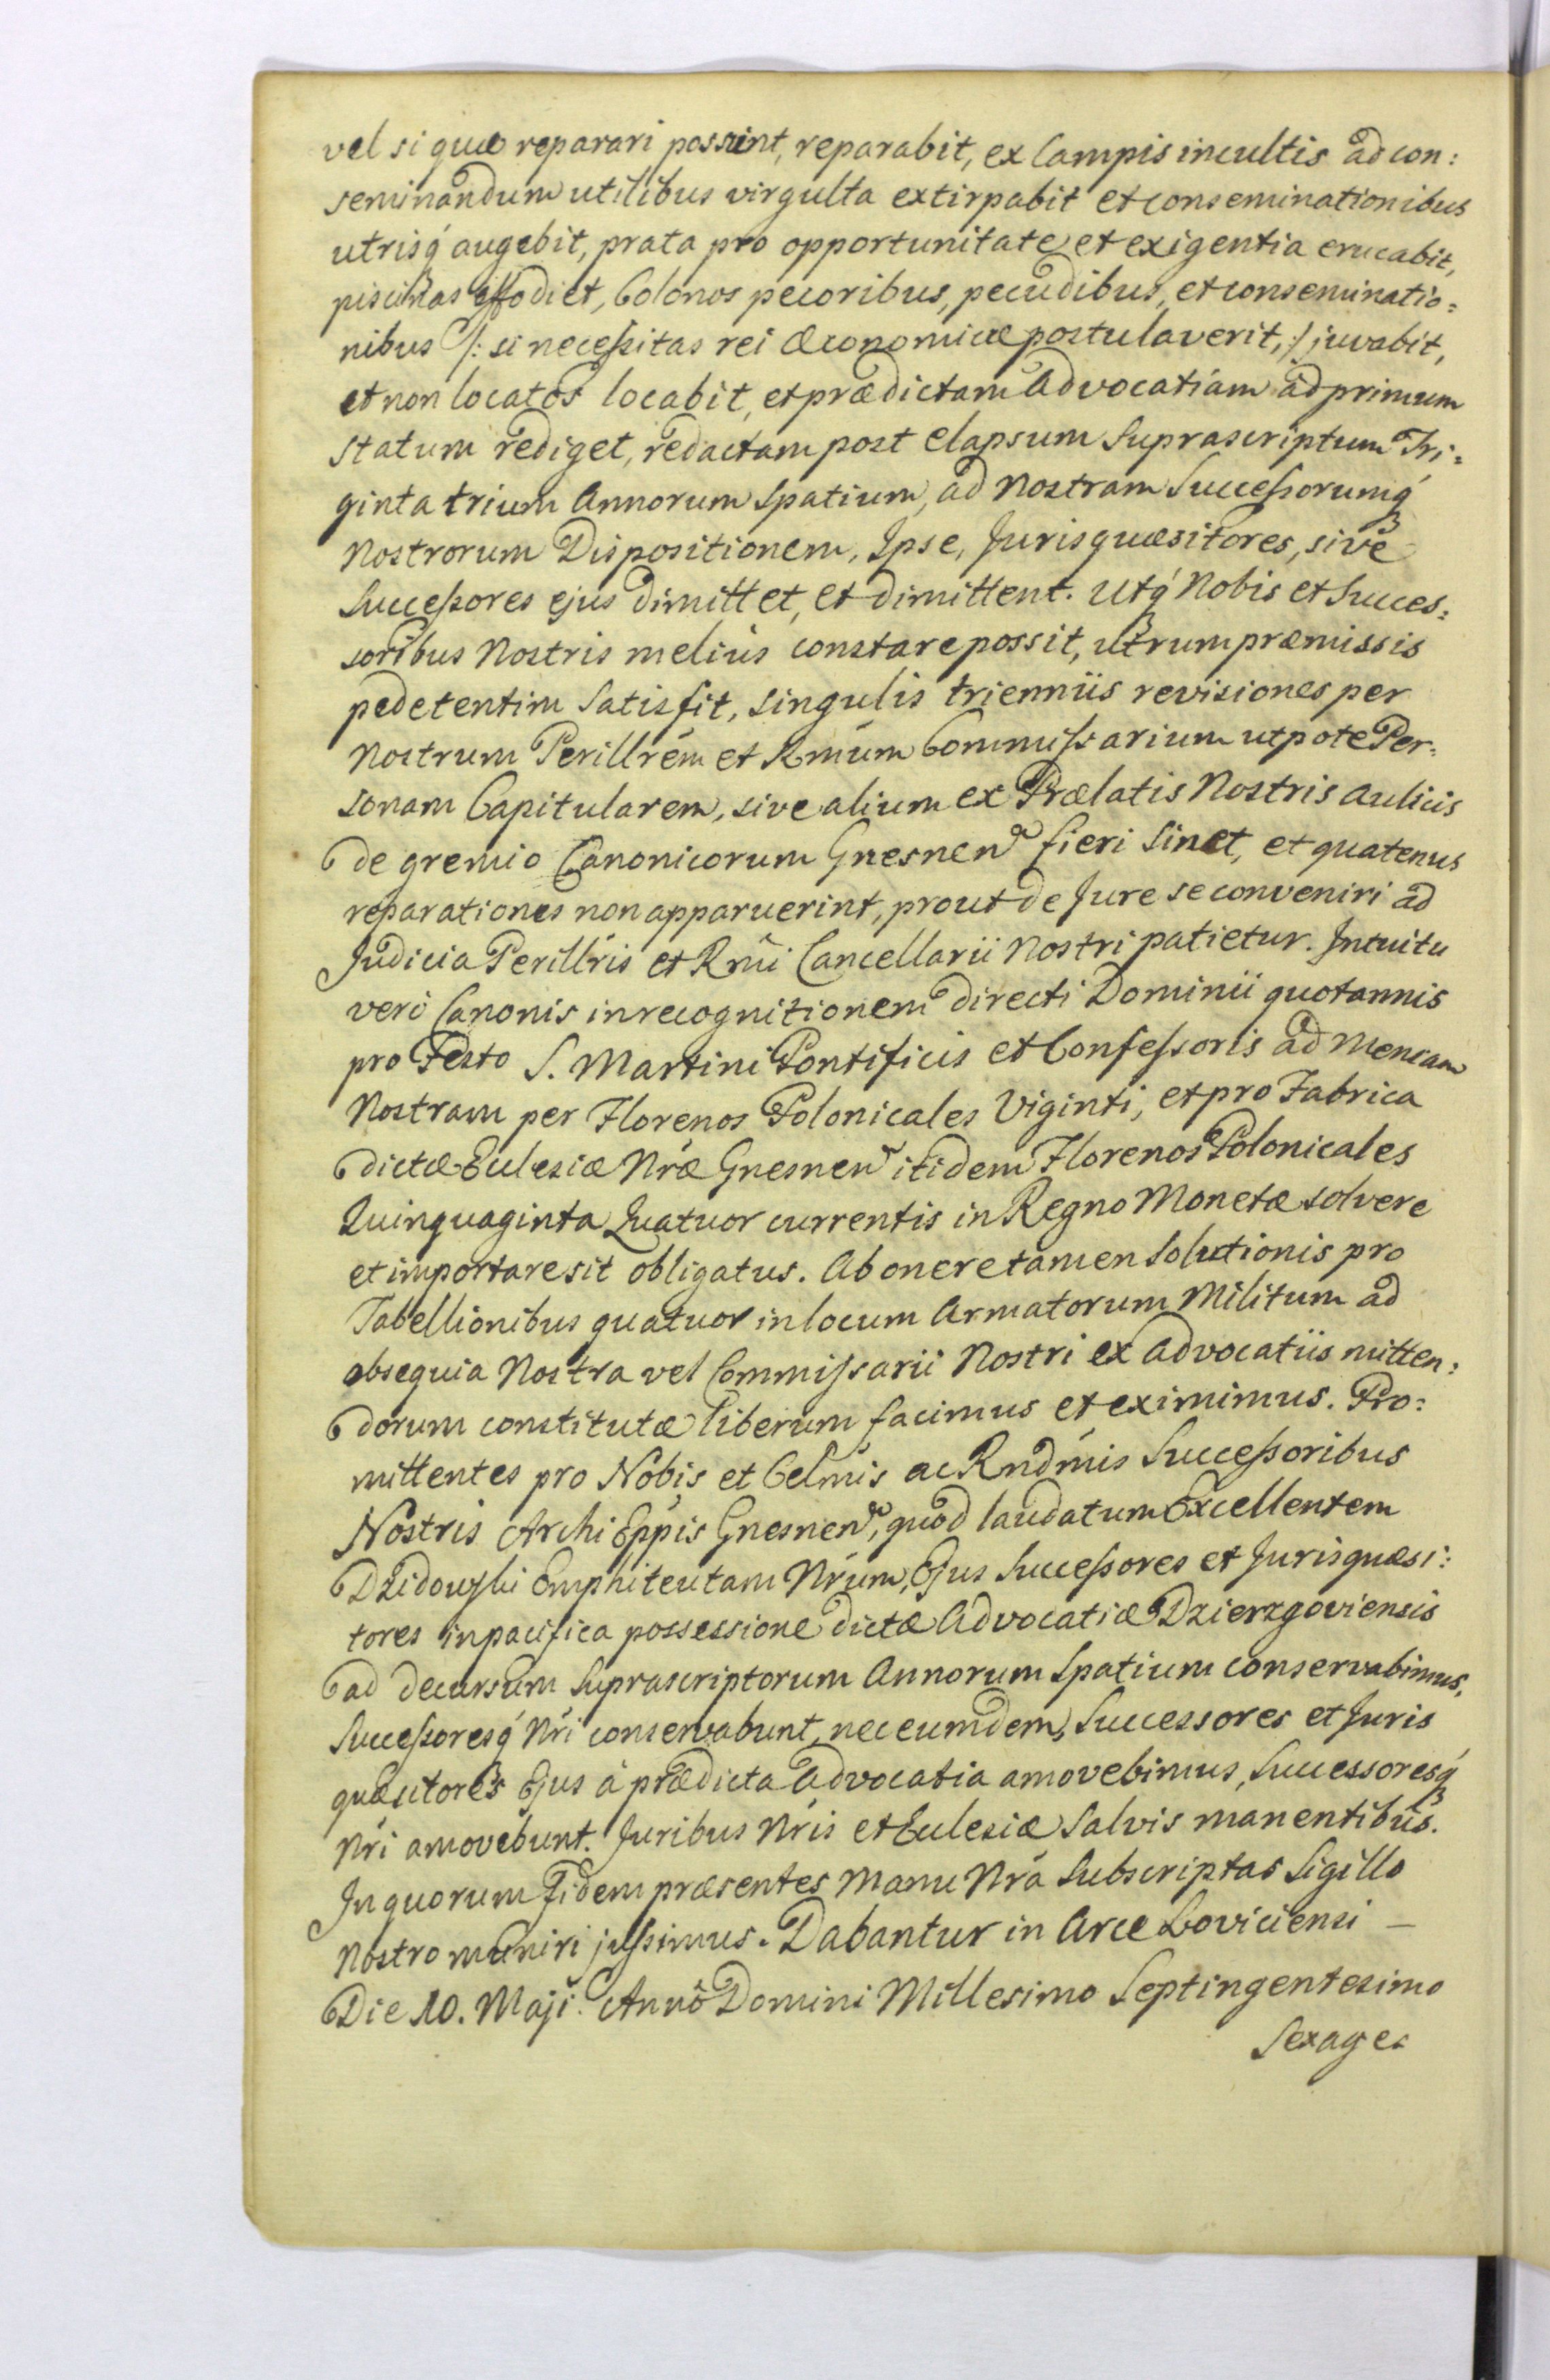 vel si quæ reparari possint, reparabit, ex Campis incultis ad con:
seminandum utilibus virgulta extirpabit et conseminationibus
utrisq́ augebit, prata pro opportunitate et exigentia erucabit,
piscinas effodiet, Colonos pecoribus, pecudibus, et conseminatio:
nibus /: si neceßitas rei œconomicæ postulaverit, :/ juvabit,
et non locatos locabit, et prædictam Advocatiam ad primum
statum rediget, redactam post elapsum Suprascriptum Tri:
ginta trium Annorum Spatium, ad Nostram Succeßorumq́
Nostrorum Dispositionem, Ipse, Jurisquæsitores, sive
Succeßores ejus dimittet, et dimittent. Utq́ Nobis et Succes:
soribus Nostris melius constare possit, utrum præmissis
pedetentim Satisfit, singulis trienniis revisiones per
Nostrum Perillrem̃ et Rmũm Commißarium utpote Per:
sonam Capitularem, sive alium ex Prælatis Nostris Aulicis
de gremio Canonicorum Gnesnen fieri Sinet, et quatenus
reparationes non apparuerint, prout de Jure se conveniri ad
Judicia Perillr̃is et Rmĩ Cancellarii Nostri patietur. Intuitu
verò Canonis in recognitionem directi Dominii quotannis
pro Festo S. Martini Pontificis et Confeßoris ad Mensam
Nostram per Florenos Polonicales Viginti, et pro Fabrica
dictæ Eclesiæ Nræ̃ Gnesnen itidem Florenos Polonicales
Quinquaginta Quatuor currentis in Regno Monetæ solvere
et importare sit obligatus. Ab onere tamen Solutionis pro
Tabellionibus quatuor in locum Armatorum Militum ad
obsequia Nostra vel Commißarii Nostri ex Advocatiis mitten:
dorum constitutæ liberum facimus et eximimus. Pro:
mittentes pro Nobis et Celmĩs ac Rndmĩs Succeßoribus
Nostris Archi Epp̃is Gnesnen, quod laudatum Excellentem
Dzidowski Emphiteutam Nrũm, Ejus Succeßores et Jurisquæsi:
tores in pacifica possessione dictæ Advocatiæ Dzierzgoviensis
ad decursum Suprascriptorum Annorum Spatium conservabimus,
Succeßoresq́ Nrĩ conservabunt, nec eumdem, Successores et Juris
quæsitores Ejus à prædicta Advocatia amovebimus, Successoresq́
Nrĩ amovebunt. Juribus Nrĩs et Eclesiæ Salvis manentibus.
In quorum Fidem præsentes Manu Nrã Subscriptas Sigillo
Nostro muniri jußimus. Dabantur in Arce Loviciensi –
Die 10. Maji. Annô Domini Millesimo Septingentesimo
Sexages